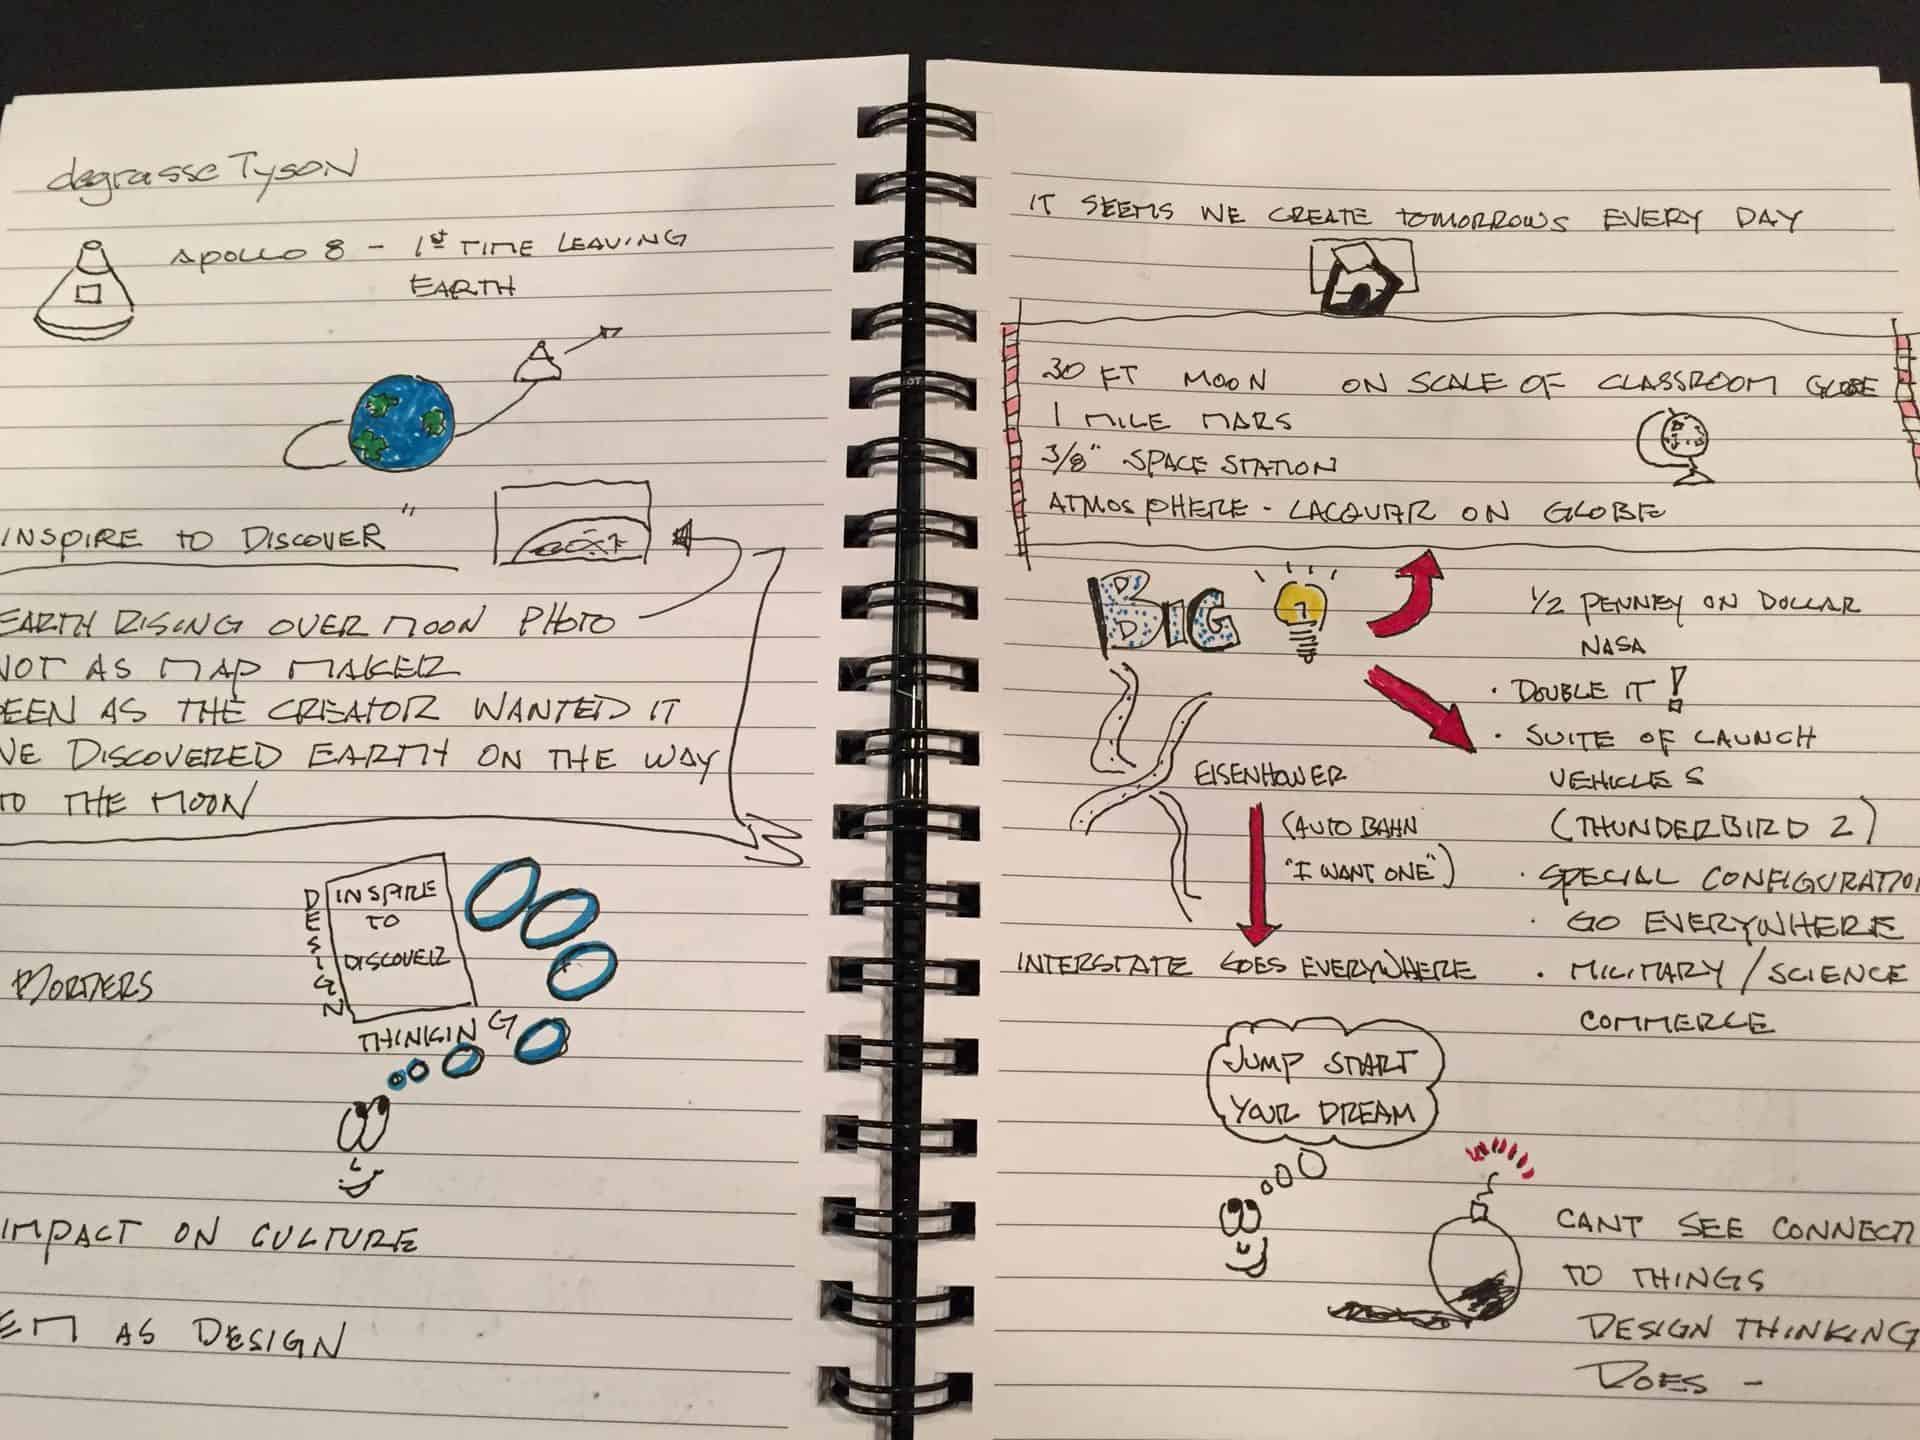 degrasse Tyson
APOLLO 8 - 1st TIME LEAVING
EARTH
INSPIRE TO DISCOVER"
EARTH RISING OVER MOON PHOTO
NOT AS MAP MAKER
EEN AS THE CREATOR WANTED IT
WE DISCOVERED EARTH ON THE WAY
TO THE MOON
DESIGN
INSPIRE
TO
DISCOVER
THINKING
BORDERS
IMPACT ON CULTURE
EM AS DESIGN
IT SEEMS WE CREATE TOMORROWS EVERY DAY
30 FT MOON ON SCALE OF CLASSROOM GLOBE
1 MILE MARS
3/8" SPACE STATION
ATMOSPHERE - LACQUAR ON GLOBE
BIG
1/2 PENNEY ON DOLLAR
NASA
· DOUBLE IT!
· SUITE OF LAUNCH
VEHICLES
(THUNDERBIRD 2)
· SPECIAL CONFIGURATION
· GO EVERYWHERE
· MILITARY / SCIENCE
COMMERCE
EISENHOWER
(AUTO BAHN
"I WANT ONE")
INTERSTATE GOES EVERYWHERE
JUMP START
YOUR DREAM
CANT SEE CONNECTI
TO THINGS
DESIGN THINKING
DOES -